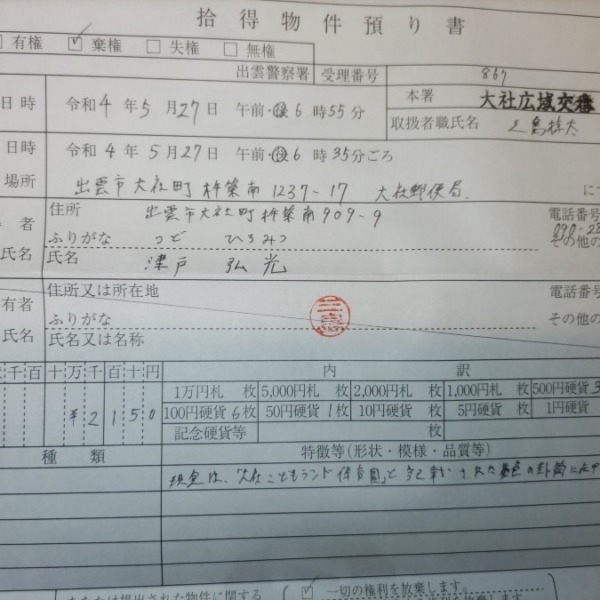 拾得物件預り書
有権 ☑棄権 □失権 □無権
出雲警察署 受理番号 867
日時 令和4年5月27日 午前・後6時55分
本署 大社広域交番
取扱者職氏名
日時 令和4年5月27日 午前・後6時35分ごろ
場所 出雲市大社町杵築南1237-17 大社郵便局
住所 出雲市大社町杵築南909-9 電話番号
者 ふりがな つど ひろみつ その他の
氏名 氏名 津戸 弘光
有者 住所又は所在地 電話番号
ふりがな その他の
氏名 氏名又は名称
千百十万千百十円 内訳
1万円札 枚 5,000円札 枚 2,000円札 枚 1,000円札 枚 500円硬貨 3
¥2150 100円硬貨 6枚 50円硬貨 1枚 10円硬貨 枚 5円硬貨 枚 1円硬貨
記念硬貨等 枚
種類 特徴等(形状・模様・品質等)
現金は、「大社こどもランド保育園」と記載された
提出された物件に関する ☑ 一切の権利を放棄します。